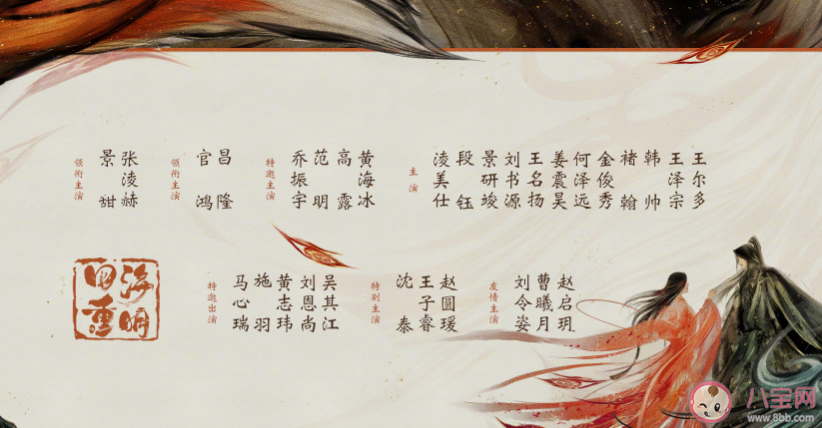 领衔主演
景甜
张凌赫
领衔主演
官鸿
昌隆
特邀主演
乔振宇
范明
高露
黄海冰
主演
凌美仕
段钰
景研竣
刘书源
王名扬
姜震昊
何泽远
金俊秀
褚翰
韩帅
王泽宗
王尔多
四海
重明
特邀出演
马心瑞
施羽
黄志玮
刘恩尚
吴其江
特别主演
沈泰
王子睿
赵圆瑗
友情主演
刘令姿
曹曦月
赵启玥
八宝网
www.8bb.com